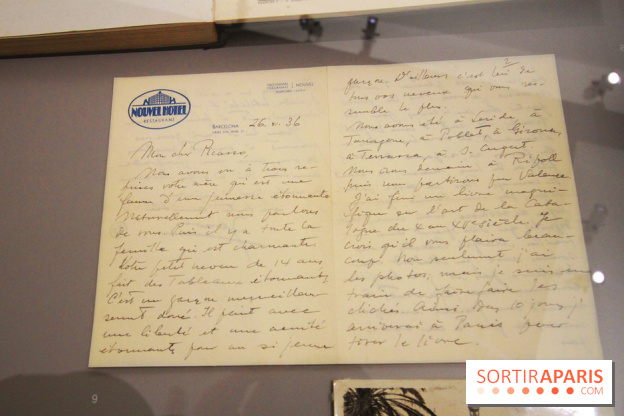 NOUVEL HOTEL
RESTAURANT
BARCELONA 26 v. 36
Mon cher Picasso,
Nous avons vu à trois re-
prises votre mère qui est une
femme d'une jeunesse étonnante
Naturellement nous parlons
de vous. Puis il y a toute la
famille qui est charmante.
Votre petit neveu de 14 ans
fait des tableaux étonnants
C'est un garçon merveilleu-
sement doué. Il peint avec
une liberté et une
étonnantes pour un si jeune
2
garçon. D'ailleurs c'est lui de
tous vos neveux qui vous res-
semble le plus.
Nous avons été à Lerida, à
Tarragone, à Poblet, à Girona,
à Terrassa, à S. Cugat.
Nous irons demain à Ripoll
puis nous partirons pour Valence
J'ai fini un livre magni-
fique sur l'art de la Cata-
logne du X au XV siècle. Je
crois qu'il vous plaira beau-
coup. Non seulement j'ai
les photos, mais je suis en
train de faire les
clichés. Dans 10 jours j'
arriverai à Paris pour
le livre.
9
SORTIRAPARIS
.COM